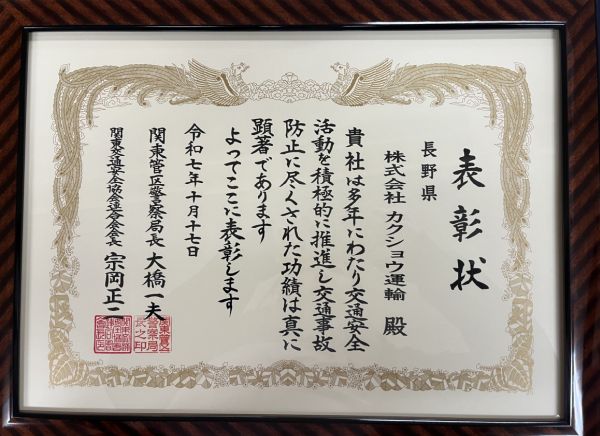 表彰状
長野県
株式会社 カクショウ運輸 殿
貴社は多年にわたり交通安全
活動を積極的に推進し交通事故
防止に尽くされた功績は真に
顕著であります
よってここに表彰します
令和七年十月十七日
関東管区警察局長 大橋一夫
関東交通安全協会連合会会長 宗岡正二
関東管区警察局長之印